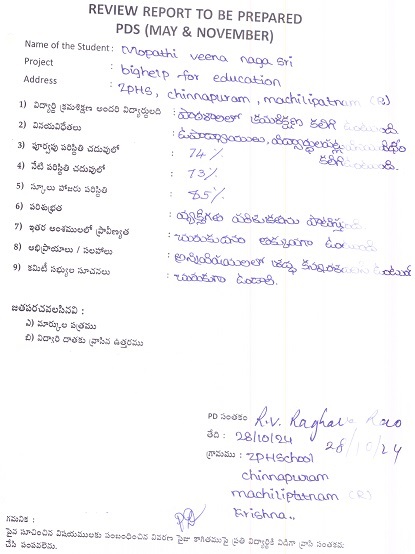 REVIEW REPORT TO BE PREPARED
PDS (MAY & NOVEMBER)
Name of the Student : Mopathi veena naga sri
Project : bighelp for education
Address : ZPHS, chinnapuram, machilipatnam (R)
1) విద్యార్థి క్రమశిక్షణ అందరి విద్యార్థులది : పాఠశాలలో క్రమశిక్షణ కలిగి ఉంటుంది
2) వినయవిధేతలు : ఉపాధ్యాయులు, కలిగి ఉంటుంది.
3) పూర్వపు పరిస్థితి చదువులో : 74%
4) నేటి పరిస్థితి చదువులో : 73%
5) స్కూలు హాజరు పరిస్థితి : 85%
6) పరిశుభ్రత : వ్యక్తిగత పరిశుభ్రతను
7) ఇతర అంశములలో ప్రావీణ్యత : చురుకుదనం ఉంటుంది
8) అభిప్రాయాలు / సలహాలు : అన్నివిషయాలలో శ్రద్ధ
9) కమిటీ సభ్యుల సూచనలు : చురుకుగా ఉండాలి.
జతపరచవలసినవి :
ఎ) మార్కుల పత్రము
బి) విద్యారి దాతకు వ్రాసిన ఉత్తరము
PD సంతకం : R.V. Raghava Rao
తేది : 28/10/24 28/10/24
గ్రామము : ZPHSchool
chinnapuram
machilipatnam (R)
Krishna..
గమనిక :
పైన సూచించిన విషయములకు సంబంధించిన వివరణ సైజు కాగితముపై ప్రతి విద్యార్థికి విడిగా వ్రాసి సంతకము
చేసి పంపవలెను.